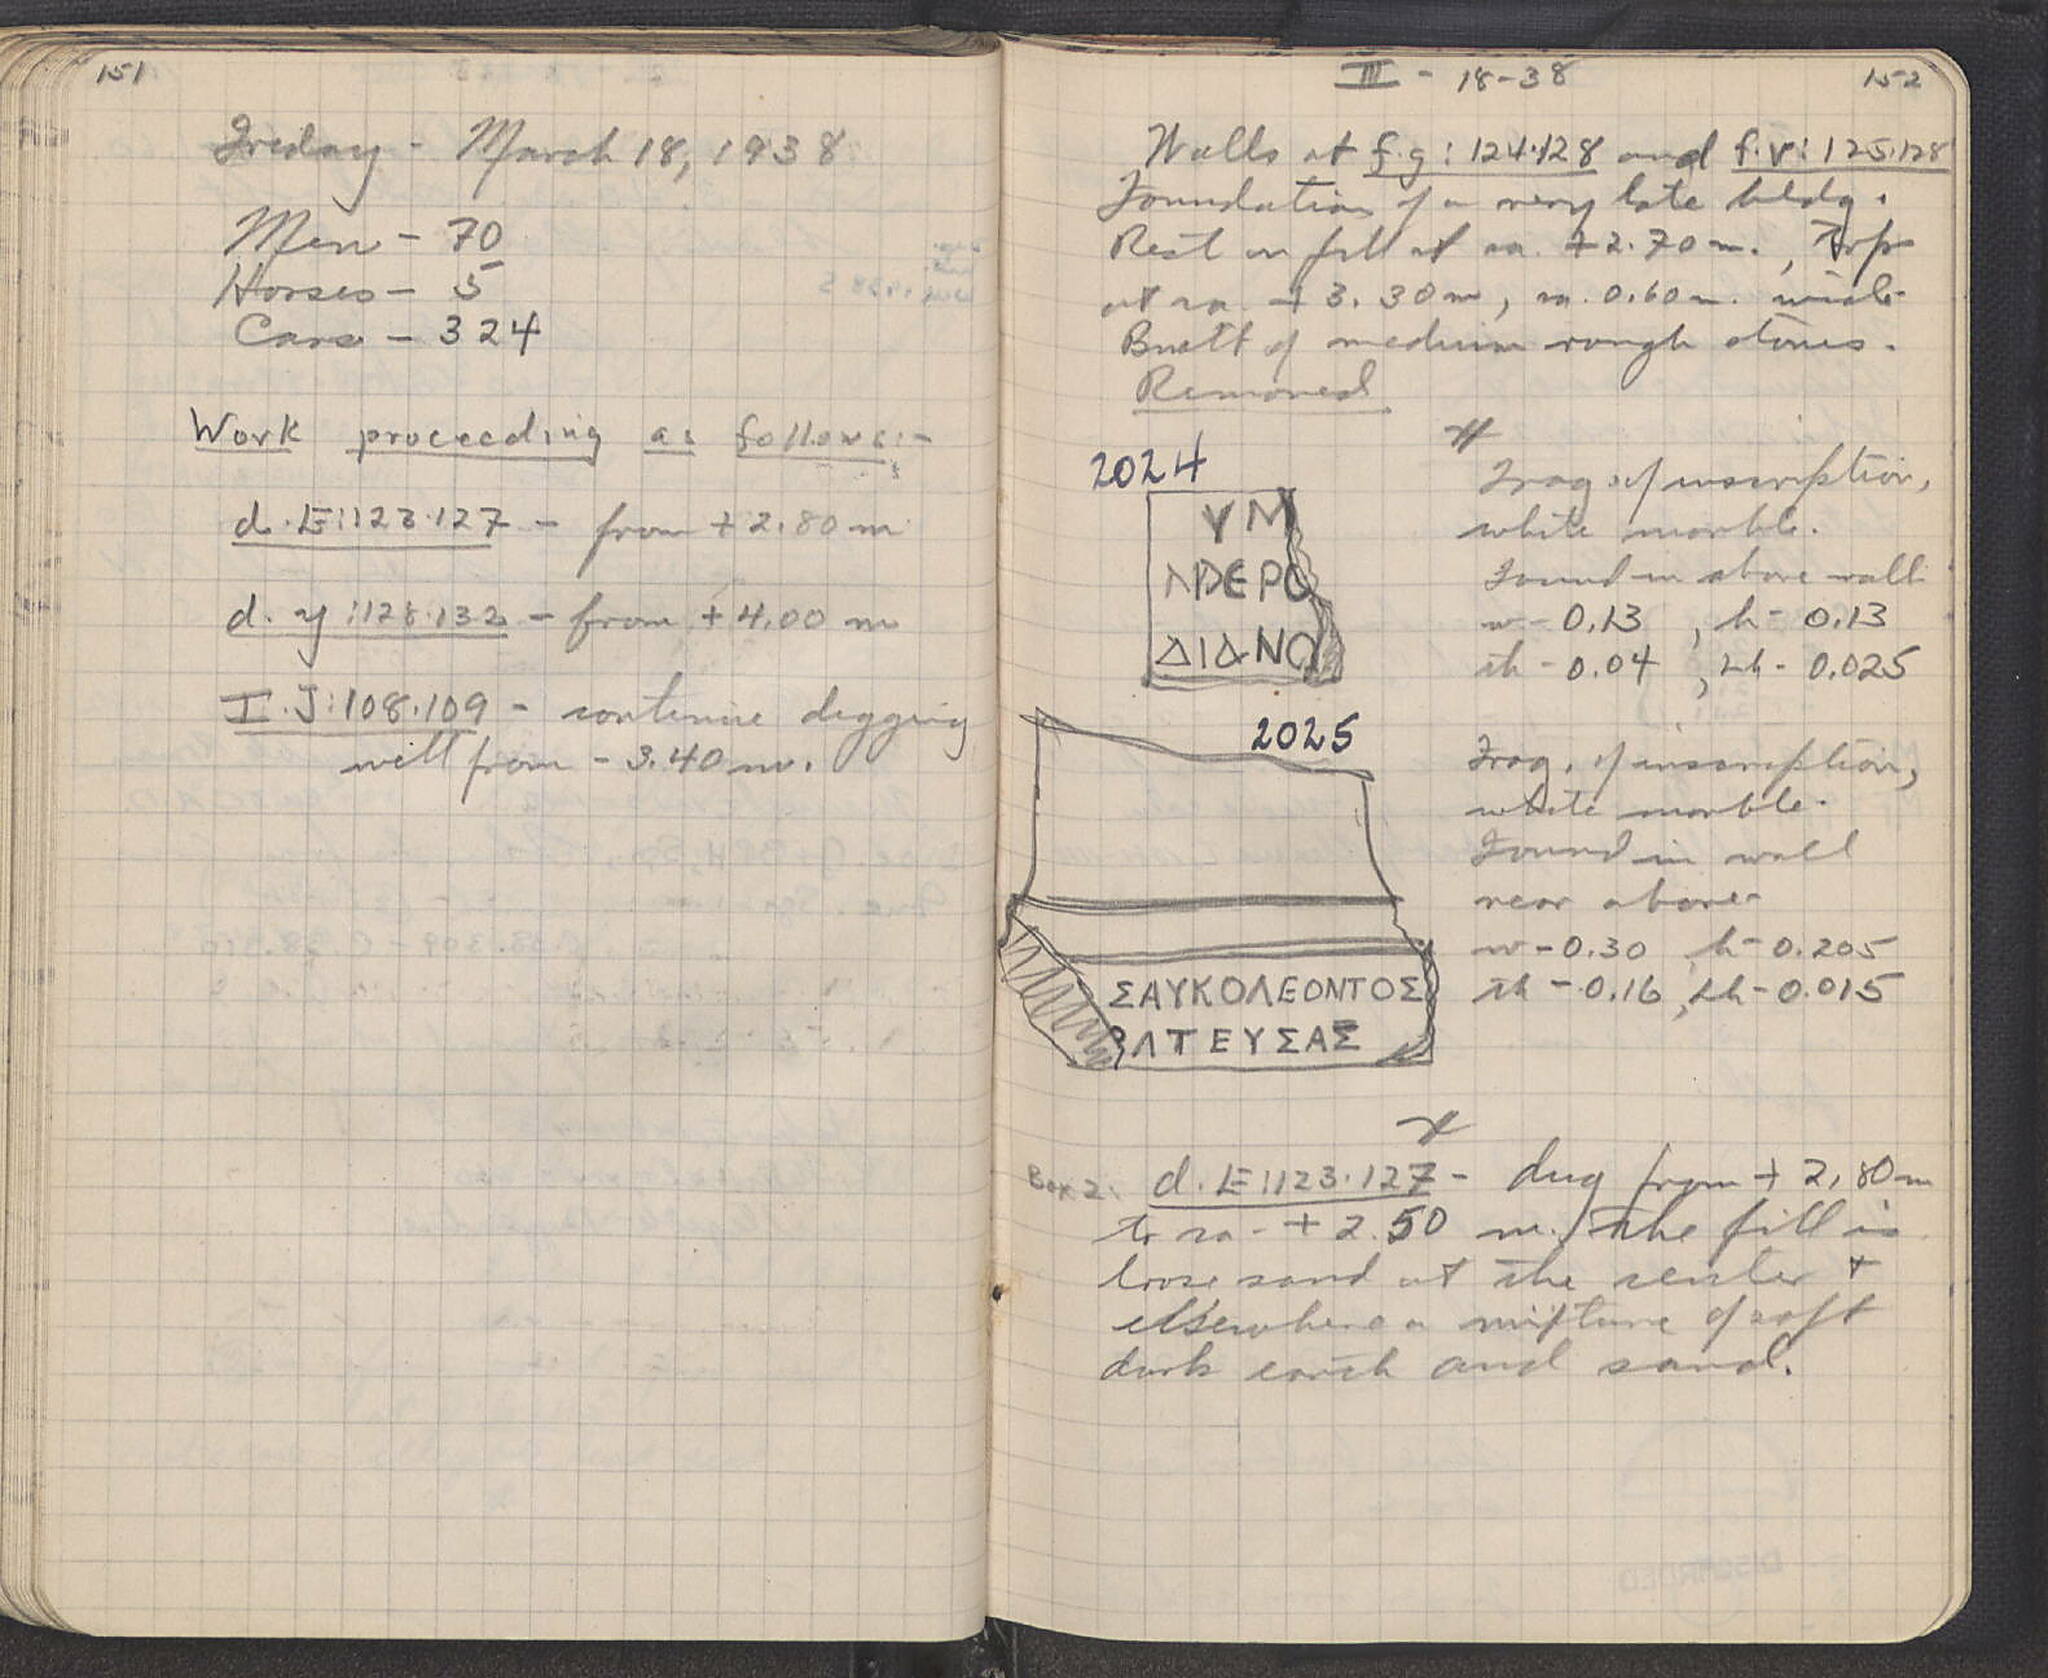 151
Friday - March 18, 1938
Men - 70
Horses - 5
Cars - 324
Work proceeding as follows:-
d.E:123.127 - from +2.80 m
d.y:128.132 - from +4.00 m
I.J:108.109 - continue digging
well from -3.40 m.
III - 18-38
152
Walls at f.g:124.128 and f.v:125.128
Foundation of a very late bldg.
Rest on fill at ca. +2.70 m., Top
at ca. +3.30 m, ca. 0.60 m. wide
Built of medium rough stones.
Removed.
2024
ΥΜ
ΔΕΡΟ
ΔΙΑΝΟ
Frag. of inscription,
white marble.
Found in above wall
w - 0.13, h - 0.13
th - 0.04, Lh - 0.025
2025
ΣΑΥΚΟΛΕΟΝΤΟΣ
ΛΤΕΥΣΑΣ
Frag. of inscription,
white marble.
Found in wall
near above
w - 0.30, h - 0.205
th - 0.16, Lh - 0.015
Box 2: d.E:123.127 - dug from +2.80 m
to ca. +2.50 m. The fill is
loose sand at the center +
elsewhere a mixture of soft
dark earth and sand.